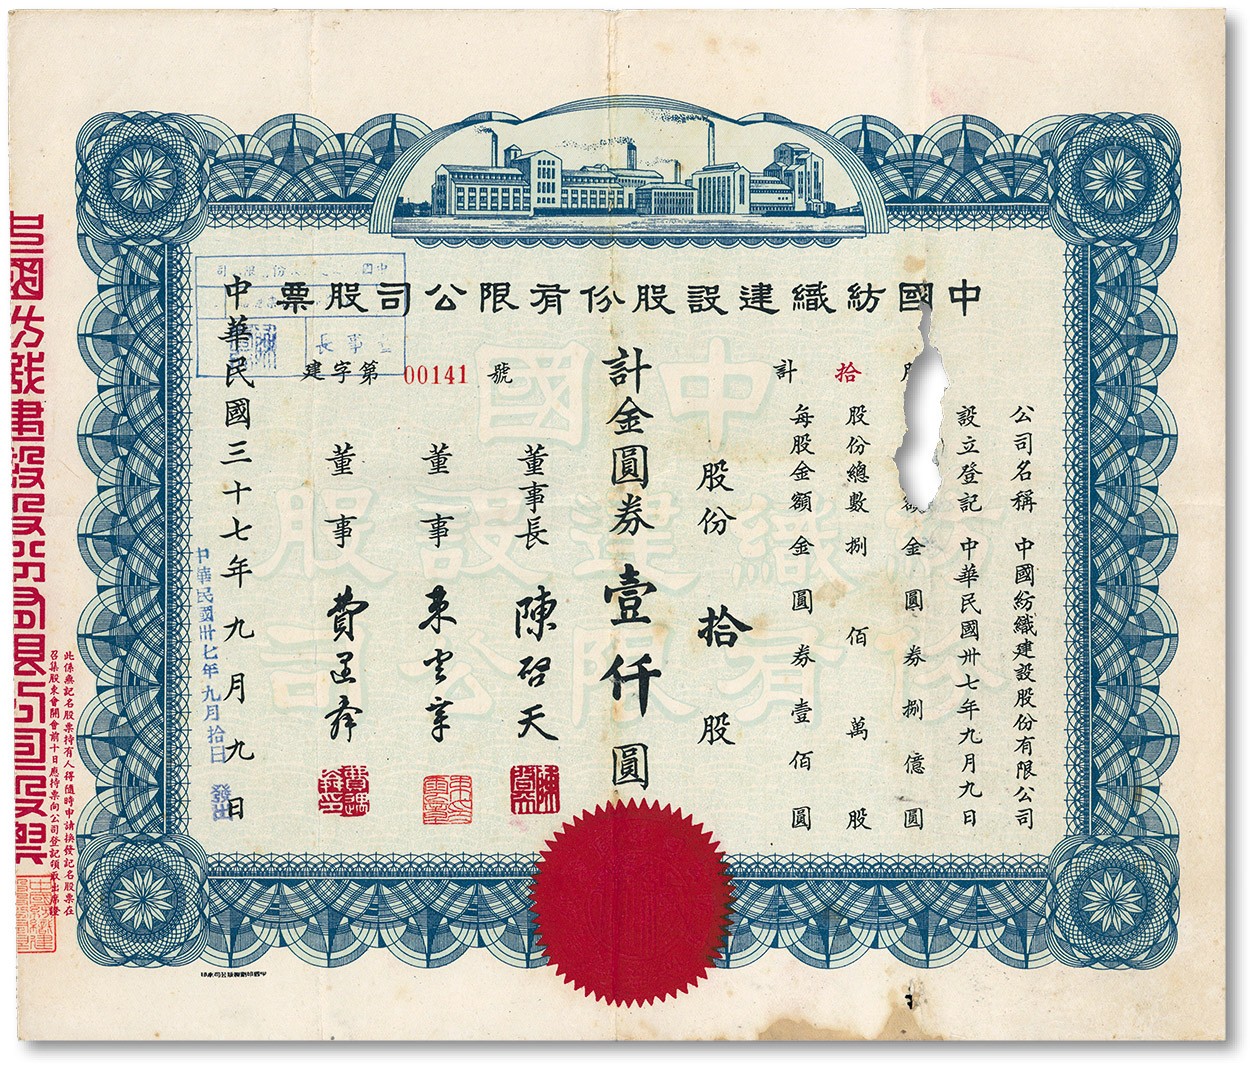 中國紡織建設股份有限公司股票
建字第 00141 號
計 拾 股
公司名稱 中國紡織建設股份有限公司
設立登記 中華民國卅七年九月九日
額金圓券捌億圓
股份總數 捌佰萬股
每股金額 金圓券壹佰圓
股份 拾 股
計金圓券壹仟圓
董事長
董事
董事
中華民國三十七年九月九日
中華民國卅七年九月拾日 發出
董事長
中國
紡織建設股
份有限公司
此係無記名股票持有人得隨時申請換發記名股票在
召集股東會開會前十日應持票向公司登記領取出席證